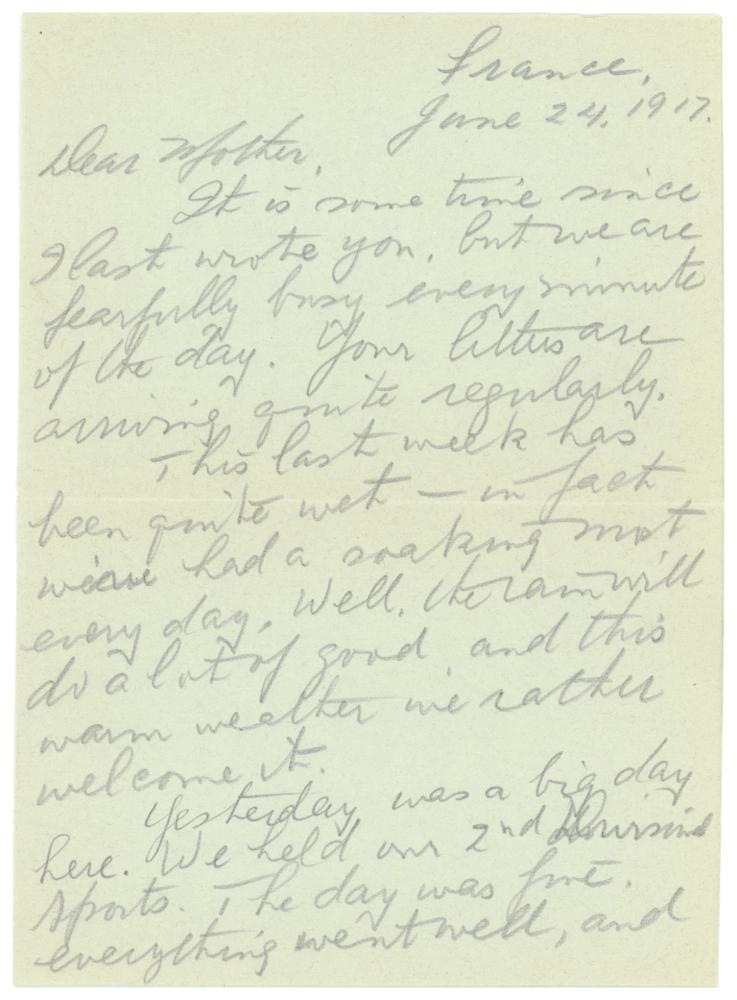 France,
June 24, 1917.
Dear Mother,
It is some time since
I last wrote you, but we are
fearfully busy every minute
of the day. Your letters are
arriving quite regularly.
This last week has
been quite wet — in fact
we've had a soaking most
every day. Well, the rain will
do a lot of good and this
warm weather we rather
welcome it.
Yesterday was a big day
here. We held our 2nd Divisional
Sports. The day was fine,
everything went well, and